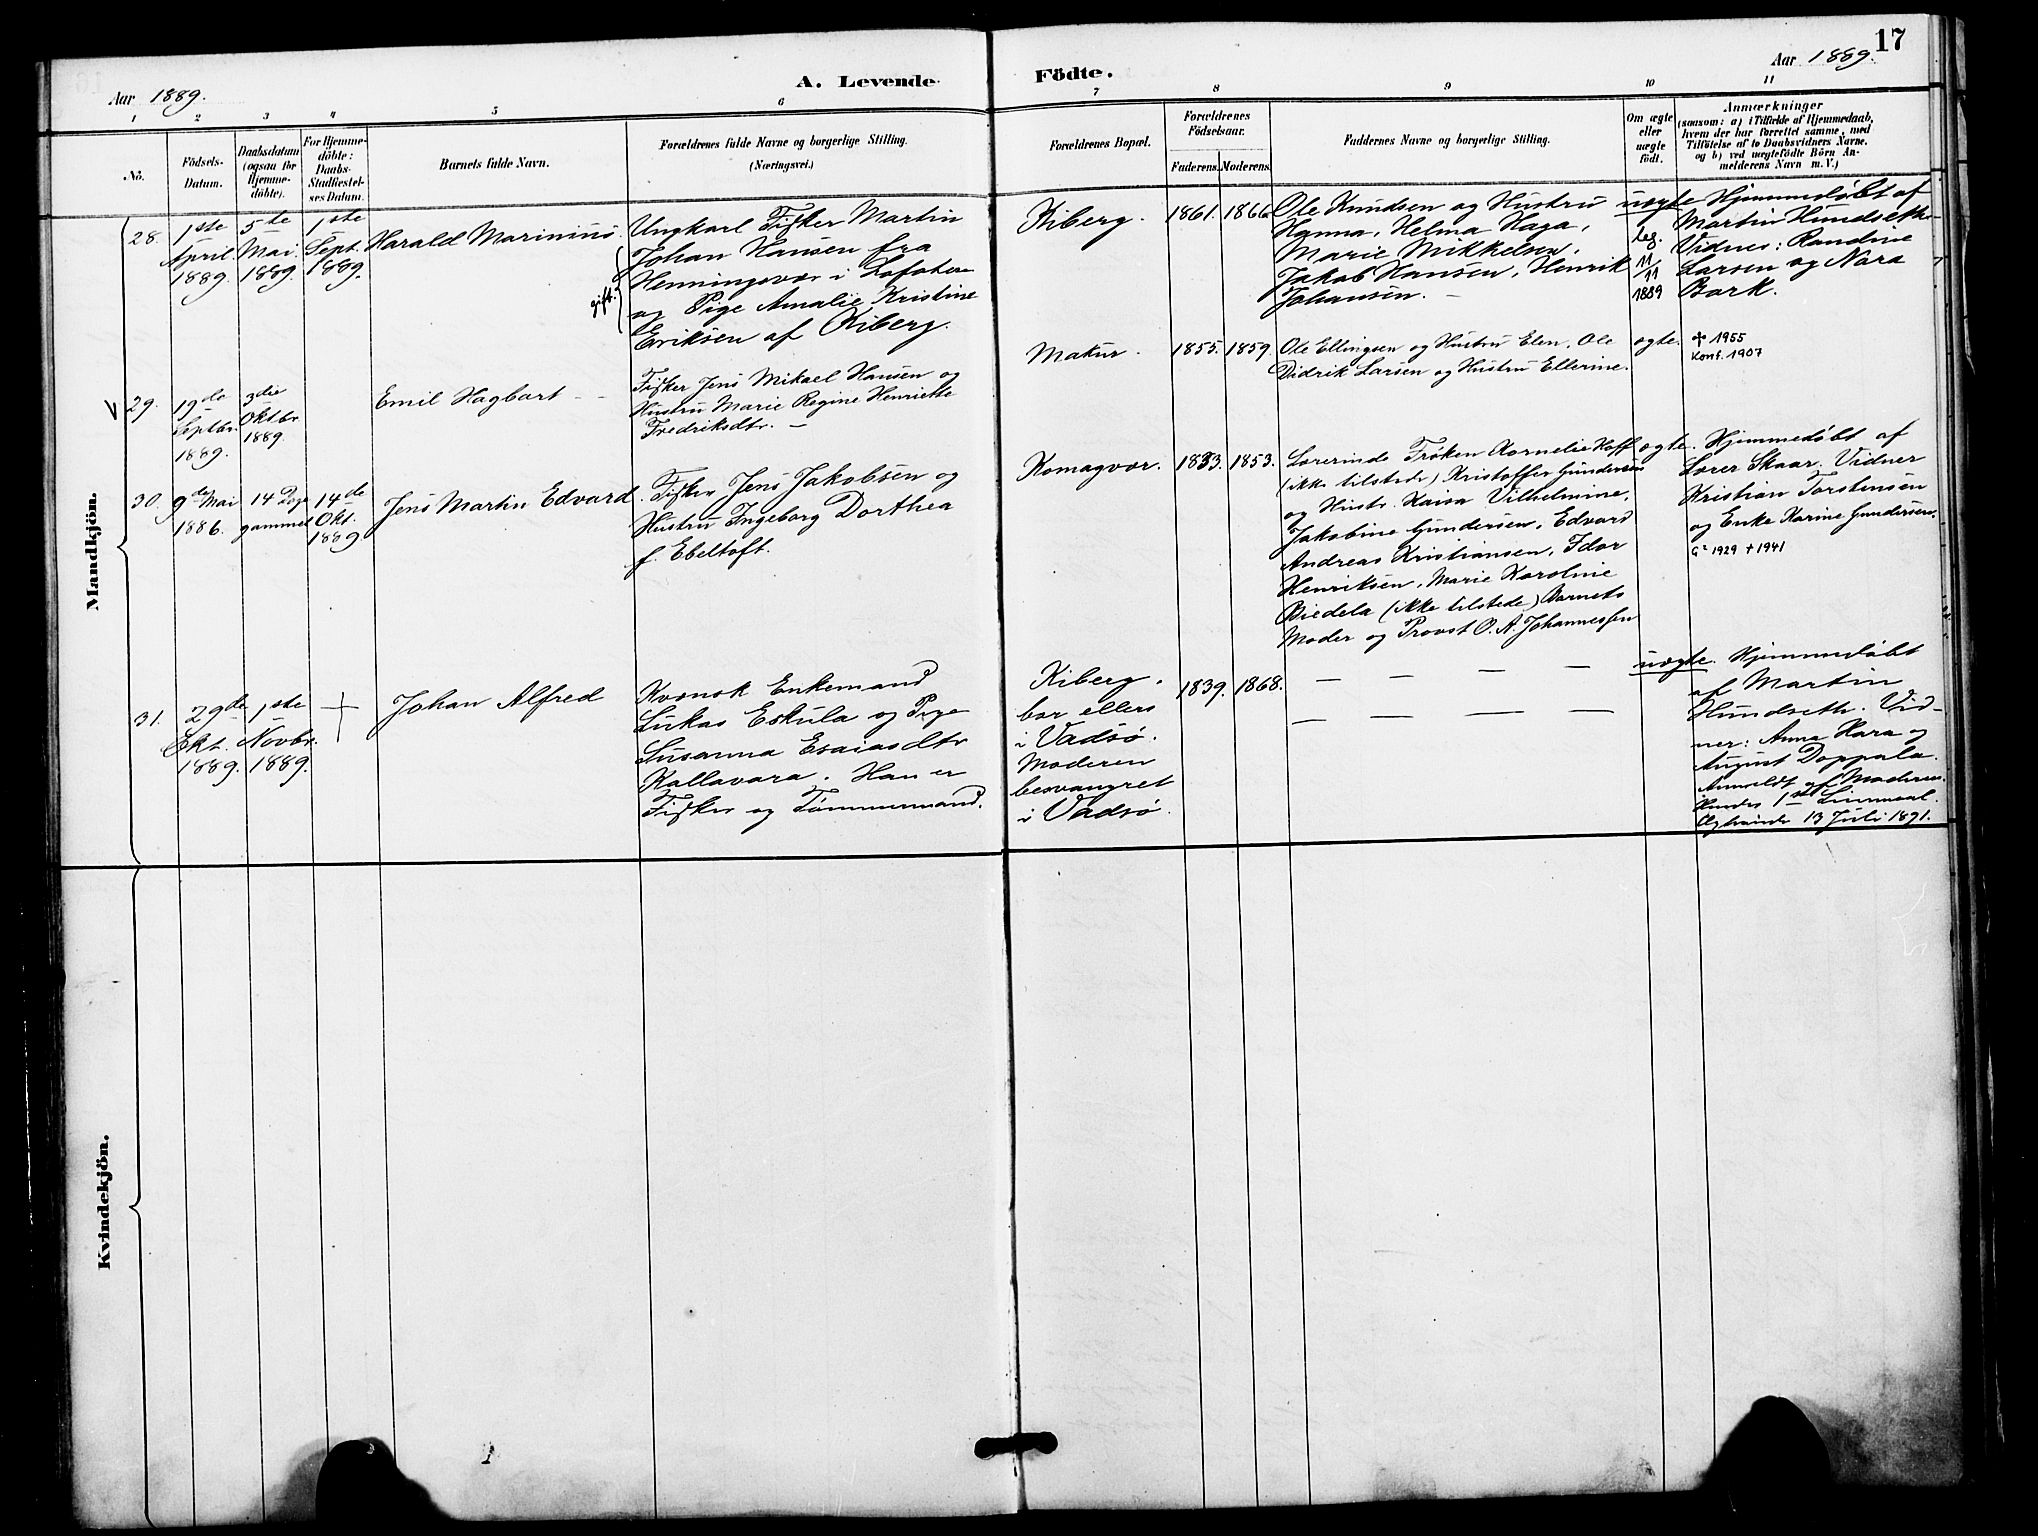 17
Aar 1889.
A. Levende
Födte.
Aar 1889.
1
2
3
4
5
6
7
8
9
10
11
No.
Födsels-
Datum.
Daabsdatum
(ogsaa for
Hjemme-
döbte).
For Hjemme-
döbte:
Daabs-
Stadfæstel-
ses Datum.
Barnets fulde Navn.
Forældrenes fulde Navne og borgerlige Stilling.
(Næringsvei.)
Forældrenes Bopæl.
Forældrenes
Födselsaar.
Faderens.
Moderens.
Faddernes Navne og borgerlige Stilling.
Om ægte
eller
uægte
födt.
Anmærkninger
(saasom: a) i Tilfælde af Hjemmedaab,
hvem der har forrettet samme, med
Tilföielse af to Daabsvidners Navne,
og b) ved uægtefödte Börn An-
melderens Navn m. V.)
Mandkjön.
28.
1ste
April
1889.
5te
Mai
1889.
1ste
Sept.
1889.
Harald Marinius.
Ungkarl Fisker Martin
Johan Hansen fra
Henningsvær i Lofoten
og Pige Amalie Kristine
Eriksen af Kiberg.
gift.
Kiberg.
1861.
1866.
Ole Knudsen og Hustru
Hanna, Helma Haga,
Marie Mikkelsen,
Jakob Hansen, Henrik
Johansen. –
uægte
leg.
11/11
1889
Hjemmedøbt af
Martin Hundseth.
Vidner: Randine
Larsen og Nora
Bork.
V 29.
19de
Septbr.
1889.
3die
Oktbr
1889.
Emil Hagbart – –
Fisker Jens Mikael Hansen og
Hustru Marie Regine Henriette
Fredriksdtr. –
Makur.
1855.
1859.
Ole Ellingsen og Hustru Elen, Ole
Didrik Larsen og Hustru Ellerine.
ægte.
✝ 1955
Konf. 1907
30.
9de Mai
1886.
14 Dage
gammel
14de
Okt.
1889
Jens Martin Edvard
Fisker Jens Jakobsen og
Hustru Ingeborg Dorthea
f. Ebeltoft.
Komagvær.
1833.
1853.
Lærerinde Frøken Kornelie Hoff
(ikke tilstede) Kristoffer Gundersen
og Hustr. Kaisa Vilhelmine,
Jakobine Gundersen, Edvard
Andreas Kristiansen, Idor
Henriksen, Marie Karoline
Biedela (ikke tilstede) Barnets
Moder og Provst O. A. Johannessen
ægte.
Hjemmedøbt af
Lærer Skaar. Vidner
Kristian Torstensen
og Enke Karine Gundersen.
G² 1929 ✝ 1941
31.
29de
Okt.
1889.
1ste
Novbr.
1889.
Johan Alfred
Kvænsk Enkemand
Lukas Eskula og Pige
Susanna Esaiasdtr
Kallavara. Han er
Fisker og Tømmermand.
Kiberg,
bor ellers
i Vadsø.
Moderen
besvangret
i Vadsø.
1839.
1868.
uægte.
Hjemmedøbt
af Martin
Hundseth. Vid-
ner: Anna Kara og
August Doppala.
Anmeldt af Moderen.
Hendes 1ste Leiermaal.
13 Juli 1891.
Kvindekjön.